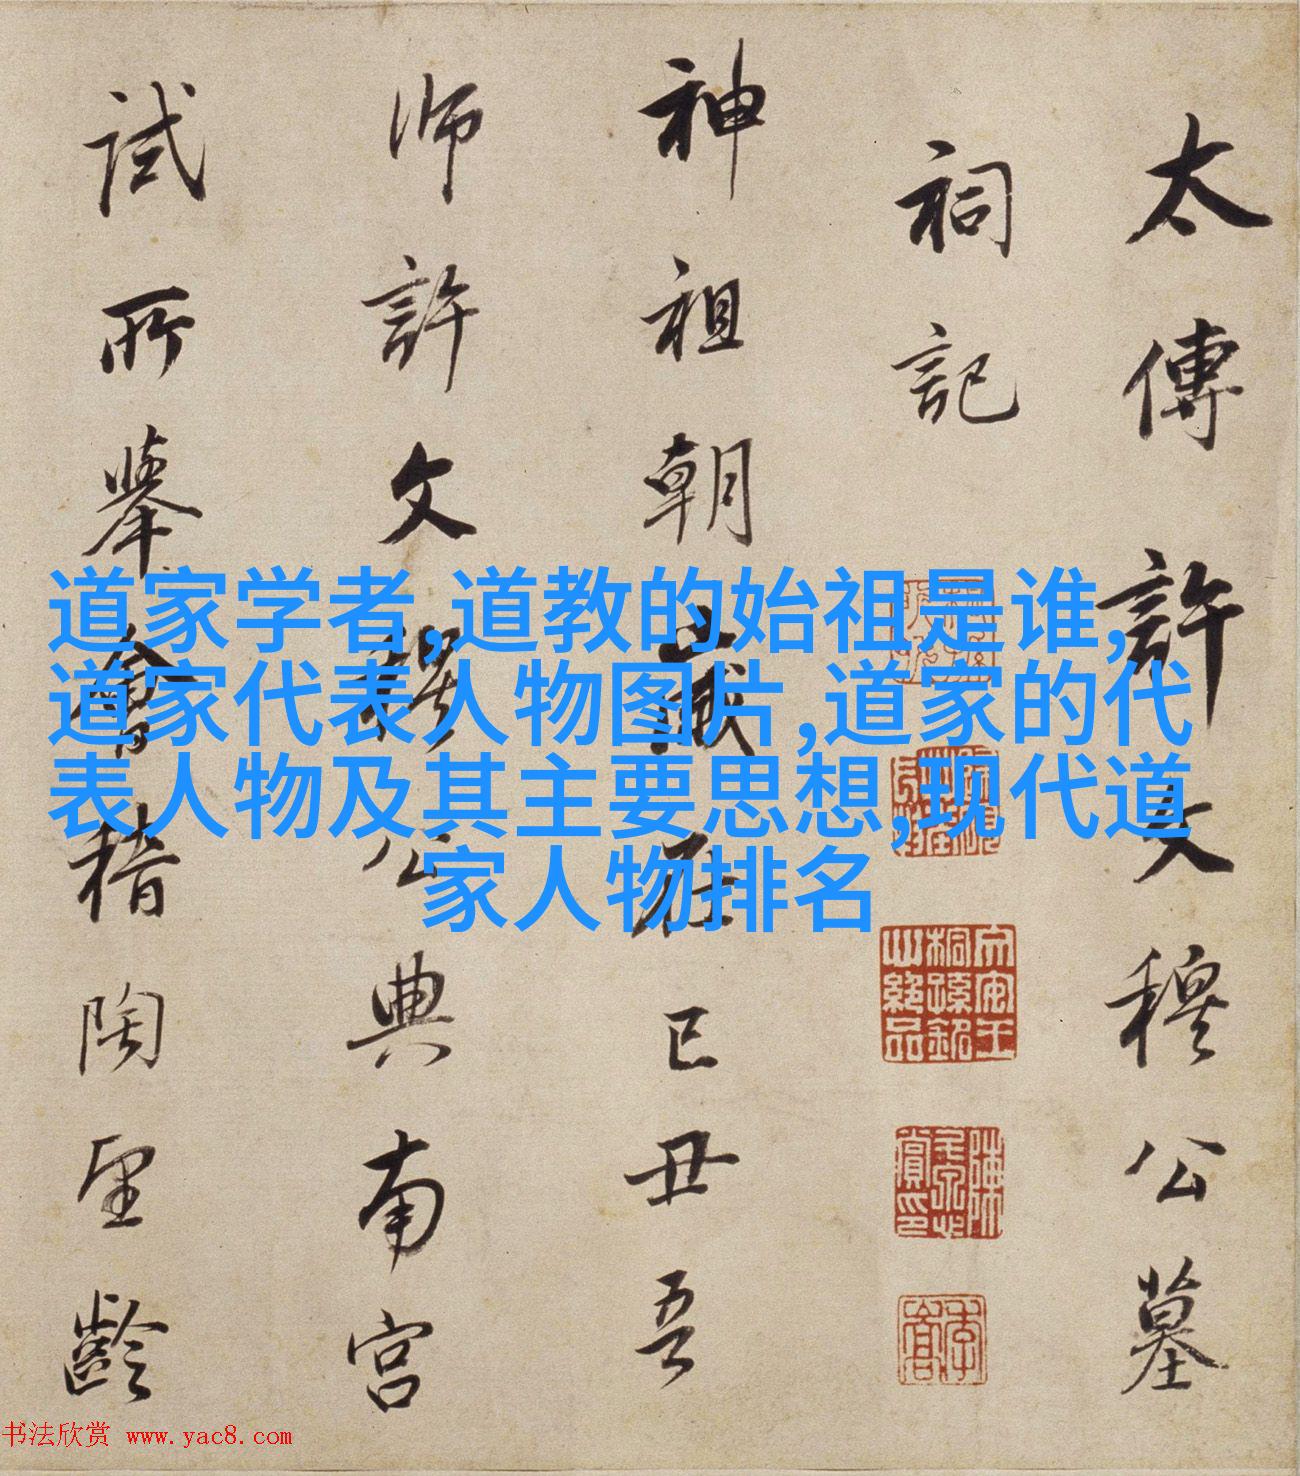 太傳許文穆公墓
祠記
神祖朝歲在已丑吾
师許文穆公典南宮
試所舉會稽陶望齡
道家学者,道教的始祖是谁,
道家代表人物图片,道家的代
表人物及其主要思想,现代道
家人物排名
书法欣赏 www.yac8.com